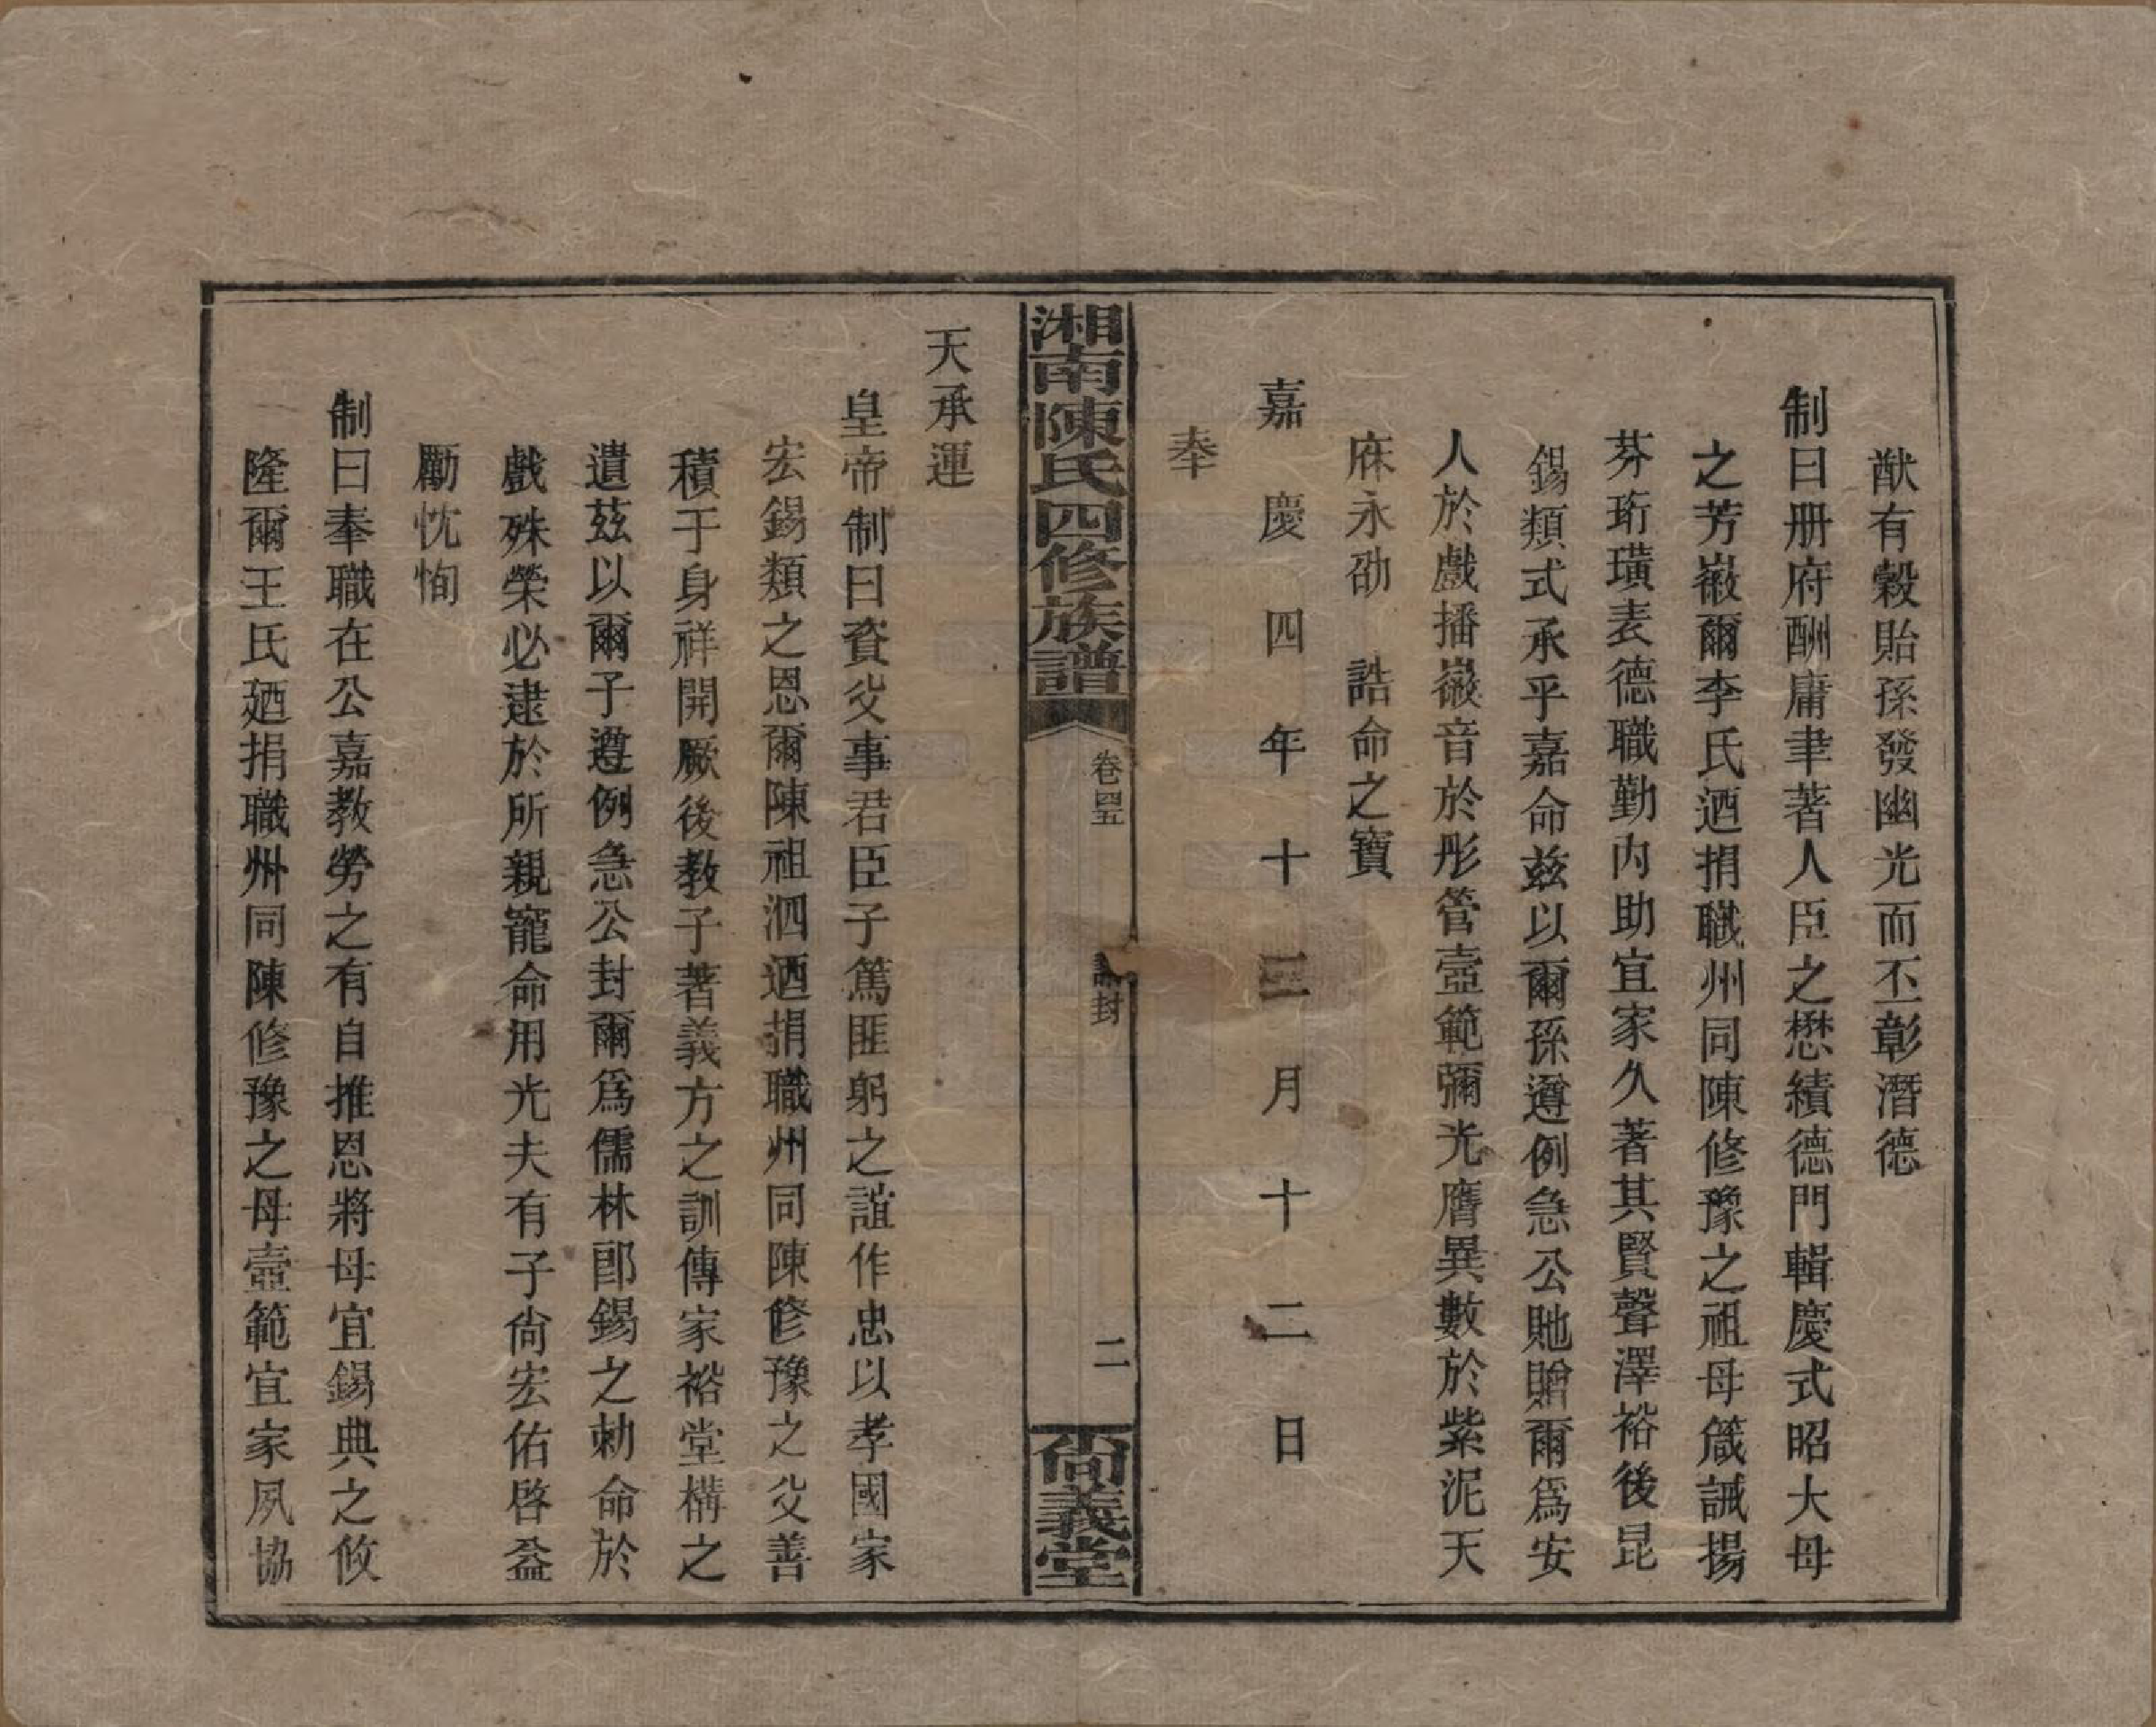 猷有穀貽孫發幽光而丕彰潛德
制曰册府酬庸聿著人臣之懋績德門輯慶式昭大母
之芳徽爾李氏迺捐職州同陳修豫之祖母箴誡揚
芬珩璜表德職勤內助宜家久著其賢聲澤裕後昆
錫類式承乎嘉命兹以爾孫遵例急公貤贈爾爲安
人於戲播徽音於彤管壼範彌光膺異數於紫泥天
庥永劭　誥命之寶
嘉慶四年十二月十二日
奉
湘南陳氏四修族譜
卷四五
誥封
二
尚義堂
天承運
皇帝制曰資父事君臣子篤匪躬之誼作忠以孝國家
宏錫類之恩爾陳祖泗迺捐職州同陳修豫之父善
積于身祥開厥後教子著義方之訓傳家裕堂構之
遺茲以爾子遵例急公封爾爲儒林郎錫之勅命於
戲殊榮必逮於所親寵命用光夫有子尙宏佑啓益
勵忱恂
制曰奉職在公嘉教勞之有自推恩將母宜錫典之攸
隆爾王氏廼捐職州同陳修豫之母壼範宜家夙協